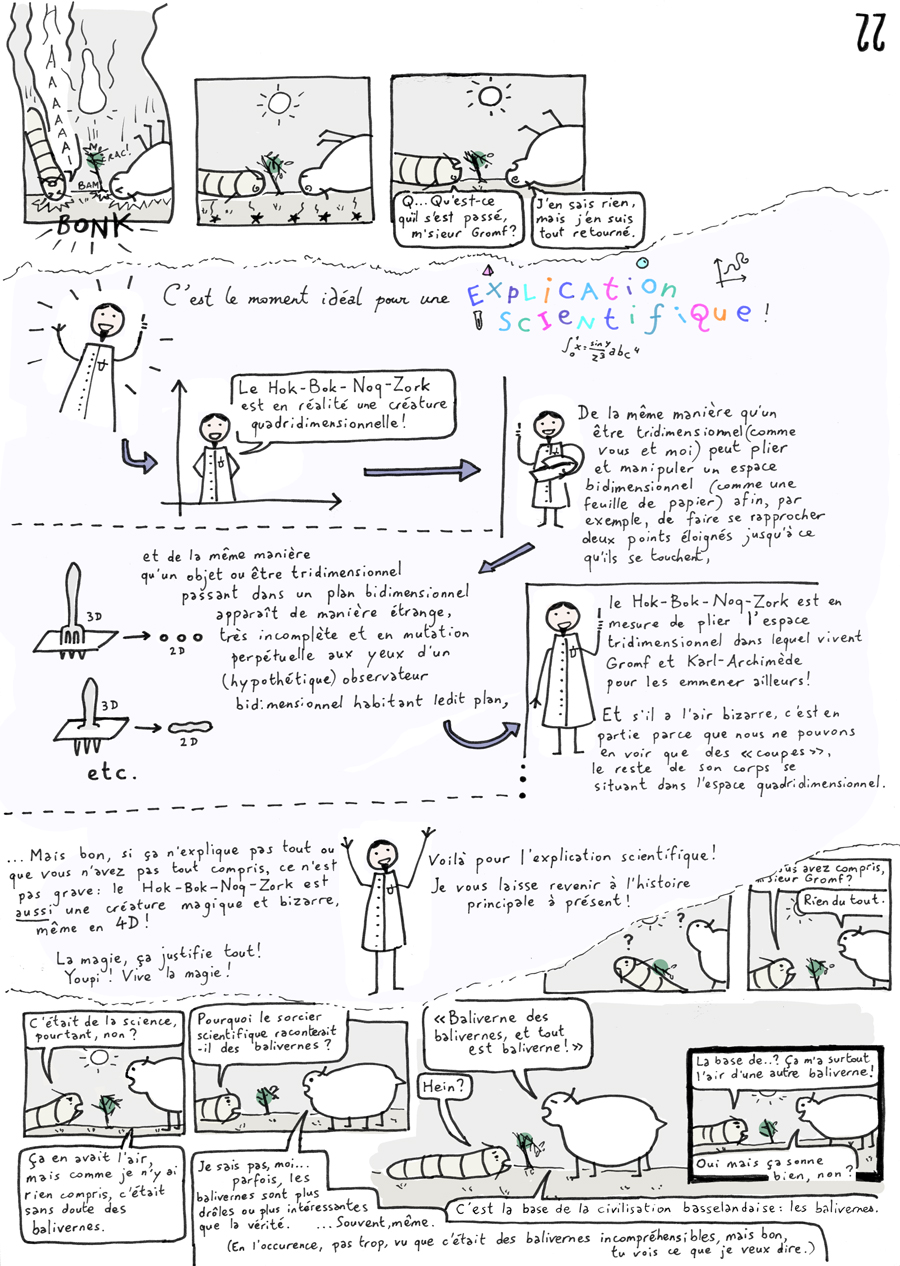 22
AAAAAAA
CRAC!
BAM
BONK
Q...Qu'est-ce
qu'il s'est passé,
m'sieur Gromf?
J'en sais rien,
mais j'en suis
tout retourné.
C'est le moment idéal pour une EXPLICATION
SCIENTIFIQUE!
Le Hok-Bok-Noq-Zork
est en réalité une créature
quadridimensionnelle!
De la même manière qu'un
être tridimensionnel(comme
vous et moi) peut plier
et manipuler un espace
bidimensionnel (comme une
feuille de papier) afin, par
exemple, de faire se rapprocher
deux points éloignés jusqu'à ce
qu'ils se touchent,
et de la même manière
qu'un objet ou être tridimensionnel
passant dans un plan bidimensionnel
apparaît de manière étrange,
très incomplète et en mutation
perpétuelle aux yeux d'un
(hypothétique) observateur
bidimensionnel habitant ledit plan,
3D
2D
3D
2D
etc.
le Hok-Bok-Noq-Zork est en
mesure de plier l'espace
tridimensionnel dans lequel vivent
Gromf et Karl-Archimède
pour les emmener ailleurs!
Et s'il a l'air bizarre, c'est en
partie parce que nous ne pouvons
en voir que des «coupes»,
le reste de son corps se
situant dans l'espace quadridimensionnel.
...Mais bon, si ça n'explique pas tout ou
que vous n'avez pas tout compris, ce n'est
pas grave: le Hok-Bok-Noq-Zork est
aussi une créature magique et bizarre,
même en 4D!
La magie, ça justifie tout!
Youpi! Vive la magie!
Voilà pour l'explication scientifique!
Je vous laisse revenir à l'histoire
principale à présent!
?
?
avez compris,
sieur Gromf?
Rien du tout.
C'était de la science,
pourtant, non?
Ça en avait l'air,
mais comme je n'y ai
rien compris, c'était
sans doute des
balivernes.
Pourquoi le sorcier
scientifique raconterait
-il des balivernes?
Je sais pas, moi...
parfois, les
balivernes sont plus
drôles ou plus intéressantes
que la vérité. ...Souvent,même.
(En l'occurence, pas trop, vu que c'était des balivernes incompréhensibles, mais bon,
tu vois ce que je veux dire.)
«Baliverne des
balivernes, et tout
est baliverne!»
Hein?
C'est la base de la civilisation basselandaise: les balivernes.
La base de..? Ça m'a surtout
l'air d'une autre baliverne!
Oui mais ça sonne
bien, non?